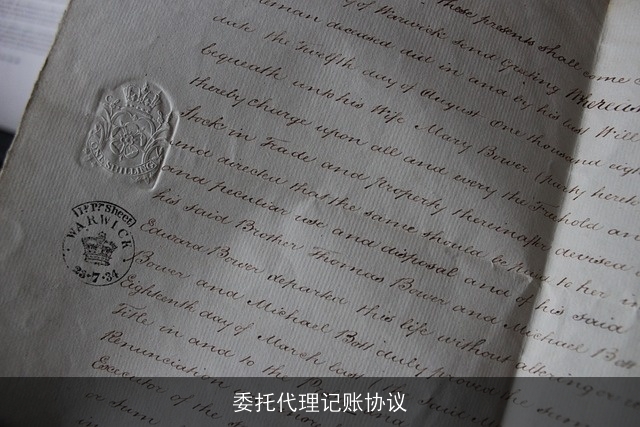 of Warwick send Greeting Whereas
deceased did in and by his last Will
date the Twelfth day of August One thousand eigh
bequeath unto his Wife Mary Bower
thereby charge upon all and every the Freehold and
Stock in Trade and property thereinafter devised
and directed that the same should be paid to her
and peculiar use and disposal and of his said
his said Brother Thomas Bower and Michael Bott
Edward Bower departed this life without altering or
Bower and Michael Bott duly proved the same
Eighteenth day of March last
Title in and to the
Renunciation
Executor of the
or sum
ONE SHILLING
Pr Sheet
WARWICK
23·7·34
委托代理记账协议